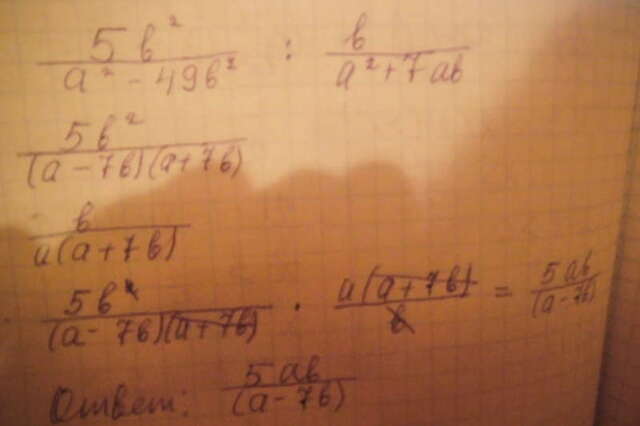 5b² / (a² - 49b²) : b / (a² + 7ab)
5b² / ((a - 7b)(a + 7b))
b / (a(a + 7b))
5b² / ((a - 7b)(a + 7b)) · a(a + 7b) / b = 5ab / (a - 7b)
Ответ: 5ab / (a - 7b)